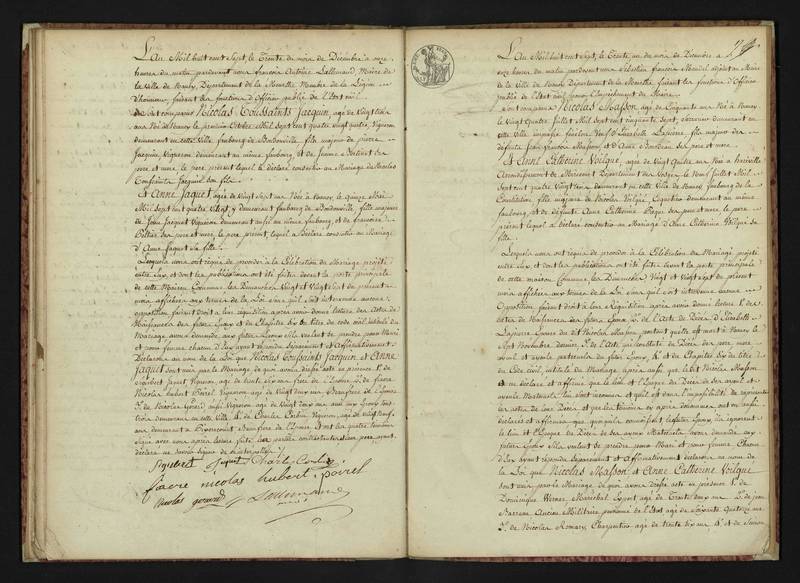 L'An Mil huit cent Sept, le Trente du mois de Décembre a onze
heures du matin pardevant nous françois Antoine Lallemand, Maire de
la Ville de Nancy, Département de la Meurthe Membre de la Légion
d'honneur, faisant les fonctions d'Officier public de l'Etat civil
Sont comparus Nicolas Toussaints Jacquin, agé de Vingt trois
ans Né à Nancy le premier Octobre Mil Sept cent quatre vingt quatre, Vigneron
demeurant en cette Ville, faubourg de Bondonville, fils majeur de pierre
Jacquin, Vigneron demeurant au même faubourg, et de Jeanne
pere et mere, le pere présent lequel a déclaré consentir au Mariage de Nicolas
Toussaints Jacquin son fils
Et Anne Jaquet, agée de Vingt Sept ans Née à Nancy, le quinze
Mil Sept cent quatre Vingt, y demeurant faubourg de Bondonville, fille majeure
de Jean Jaquet Vigneron demeurant aussi au même faubourg, et de françoise
pere et mere, le pere présent, lequel a déclaré consentir au Mariage
d'Anne Jaquet sa fille
Lesquels nous ont requis de procéder à la Célébration du Mariage projetté
entre eux, et dont les publications ont été faites devant la porte principale
de cette Maison Commune, les Dimanches Vingt et Vingt Sept du présent
mois affichées aux termes de la Loi sans qu'il soit intervenu aucune
opposition faisant droit à leur réquisition après avoir donné lecture des Actes de
Naissances des futurs Epoux et du Chapitre Six du titre du code civil, intitulé du
Mariage avons demandé aux futurs Epoux s'ils veulent se prendre pour Mari
et pour femme chacun d'Eux ayant répondu Séparément et Affirmativement
Déclarons au nom de la Loi que Nicolas Toussaints Jacquin et Anne
Jaquet sont unis par le Mariage de quoi avons dressé acte en présence 1°. de
Sigisbert Jaquet Vigneron, agé de trente six ans frere de l'Epouse 2°. de fiacre
Nicolas hubert Poirel Vigneron, agé de Vingt deux ans Beaufrere de l'Epouse
3°. de Nicolas Gerard aussi Vigneron agé de Vingt deux ans ami des Epoux tous
trois demeurans en cette Ville 4°. de Charles Vigneron, agé de vingt neuf
ans demeurant à Beaufrere de l'Epoux. Et ont les quatre témoins
signé avec nous après lecture faite, les parties contractantes et les peres ayant
déclaré ne savoir signer de ce interpellés
Sigisbert Jaquet Charle
fiacre nicolas hubert poirel
Nicolas gerard Lallemand
L'An Mil huit cent Sept, le Trente un du mois de Décembre à
onze heures du matin pardevant nous Sébastien françois Mandel adjoint au Maire
de la Ville de Nancy Département de la Meurthe faisant les fonctions d'Officier
public de l'Etat civil pour l'empêchement du Maire
Sont comparus Nicolas Masson agé de Cinquante ans Né à Nancy
le Vingt Quatre Juillet Mil Sept cent cinquante Sept, demeurant en
cette Ville Veuf d'Elisabeth Lapierre fils majeur des
défunts Jean françois Masson, et d'Anne ses pere et mere
Et Anne Catherine Voilque, agée de Vingt Quatre ans Née à
Arrondissement de Mirecourt Département des Vosges, le Neuf Juillet Mil
Sept cent quatre Vingt trois, demeurant en cette Ville de Nancy faubourg de la
Constitution, fille majeure de Nicolas Voilque, demeurant au même
faubourg, et de défunte Anne Catherine pere et mere, le pere
présent lequel a déclaré consentir au Mariage d'Anne Catherine Voilque sa
fille
Lesquels nous ont requis de procéder à la Célébration du Mariage projetté
entre eux, et dont les publications ont été faites devant la porte principale
de cette maison Commune, les Dimanches Vingt et Vingt Sept du présent
mois affichées aux termes de la Loi sans qu'il soit intervenu aucune
Opposition faisant droit à leur Réquisition après avoir donné lecture 1°. des
actes de Naissances des futurs Epoux, 2°. de l'Acte de Décès d'Elisabeth
Lapierre Epouse de dit Nicolas Masson, portant qu'elle est morte à Nancy le
Sept Novembre dernier 3°. de l'Acte qui constate le Décès des pere mere
ayeul et ayeule paternels du futur Epoux, 4°. et du Chapitre Six du titre
du Code civil, intitulé du Mariage après que ledit Nicolas Masson
eu déclaré et affirmé que le lieu et l'Epoque du Décès de ses ayeul et
ayeule Maternels lui sont inconnus et qu'il est dans l'impossibilité de représenter
les actes de leur Décès et que les témoins cy après dénommés ont ensuite
déclaré et affirmé que, quoiqu'ils connoissent le futur Epoux, ils ignorent
le lieu et l'Epoque du Décès de ses ayeux Maternels avons demandé aux
futurs Epoux s'ils veulent se prendre pour Mari et pour femme Chacun
d'Eux ayant répondu Séparément et Affirmativement déclarons au nom de
la Loi que Nicolas Masson et Anne Catherine Voilque
sont unis par le Mariage de quoi avons dressé acte en présence 1°. de
Dominique Werner Maréchal Expert agé de Trente deux ans 2°. de Jean
Ancien Militaire pensioné de l'Etat agé de Soixante Quatorze ans
3°. de Nicolas Romary Charpentier agé de trente six ans 4°. et de